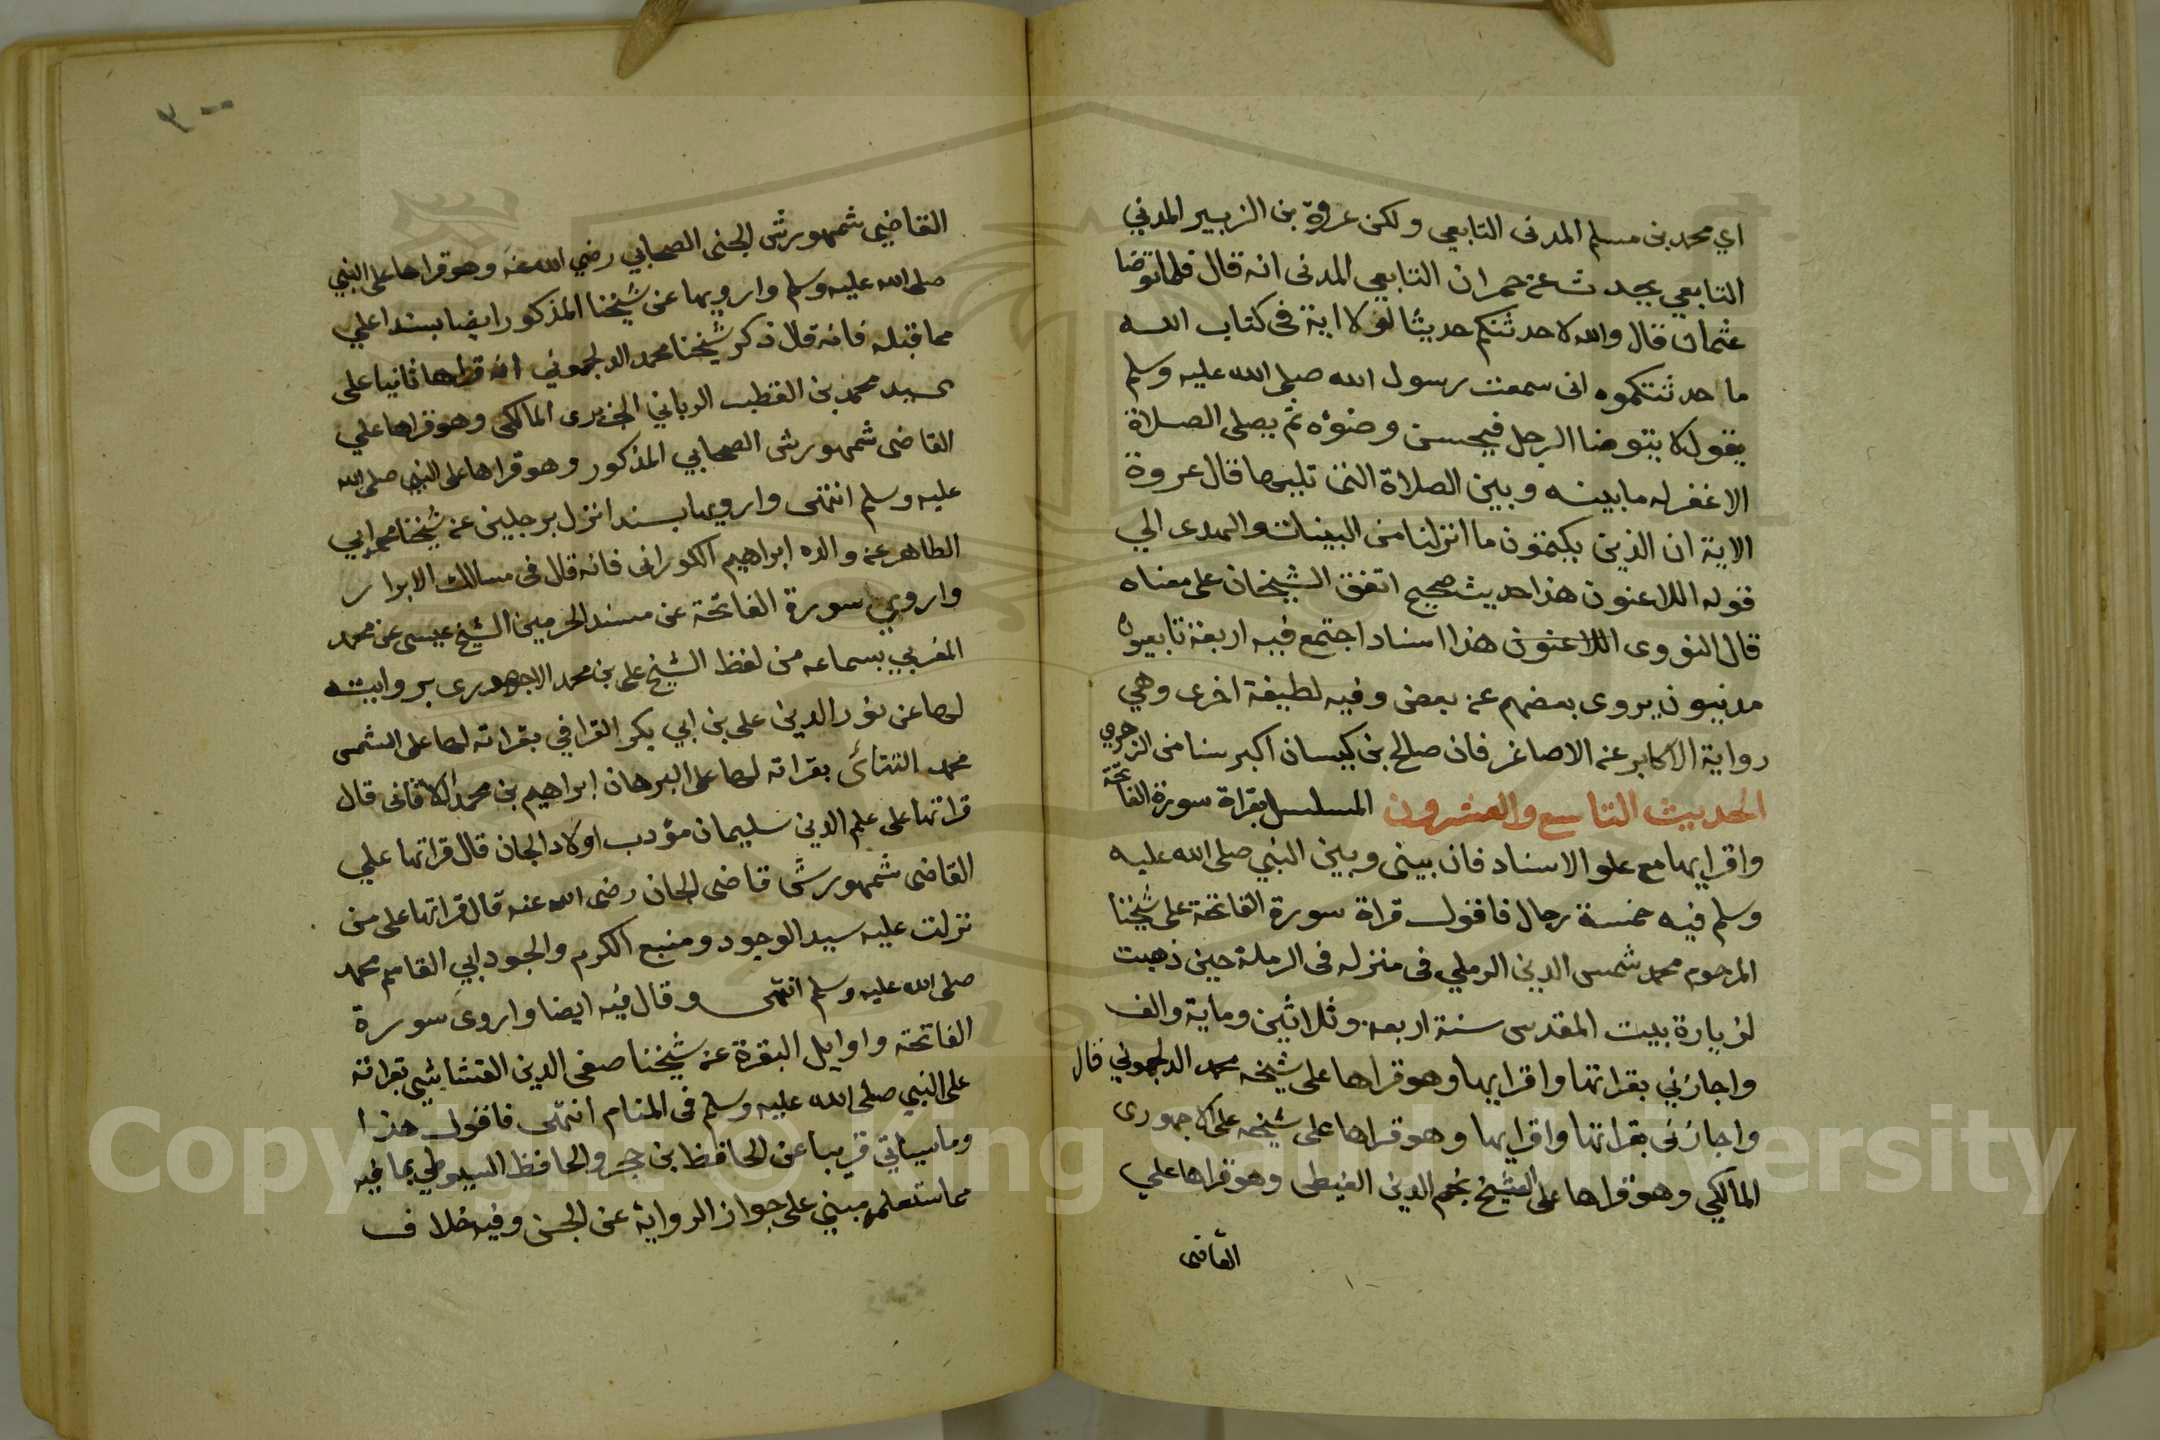 اي محمد بن مسلم المدنى التابعى ولكن عروة بن الزبير المدني
التابعي يحدث عن حمران التابعي المدنى انه قال فلما توضا
عثمان قال والله لاحدثنكم حديثا لولا اية فى كتاب الله
ما حدثتكموه انى سمعت رسول الله صلى الله عليه وسلم
يقول لا يتوضا الرجل فيحسن وضوه ثم يصلى الصلاة
الا غفر له ما بينه وبين الصلاة التى تليها قال عروة
الاية ان الذين يكتمون ما انزلنا من البينات والهدى الي
قوله اللاعنون هذا حديث صحيح اتفق الشيخان على معناه
قال النووى اللاعنون هذا اسناد اجتمع فيه اربعة تابعيون
مدنيون يروى بعضهم عن بعض وفيه لطيفة اخرى وهي
رواية الاكابر عن الاصاغر فان صالح بن كيسان اكبر سنا من الزهري
الحديث التاسع والعشرون المسلسل بقراة سورة الفاتحة
واقرايها مع علو الاسناد فان بينى وبين النبي صلى الله عليه
وسلم فيه خمسة رجال فاقول قراة سورة الفاتحة على شيخنا
المرحوم محمد شمس الدين الرملي فى منزله فى الرملة حين ذهبت
لزيارة بيت المقدس سنة اربعه وثلاثين وماية والف
واجازني بقراتها واقرايها وهو قراها على شيخه محمد الدلجموني قال
واجازنى بقراتها واقرايها وهو قراها على شيخه على الاجهورى
المالكي وهو قراها على الشيخ نجم الدين الغيطى وهو قراها علي
القاضى
القاضي شمهورش الجنى الصحابي رضي الله عنه وهو قراها على النبي
صلى الله عليه وسلم وارويها عن شيخنا المذكور ايضا بسند اعلي
مما قبله فانه قال ذكر شيخنا محمد الدلجموني انه قراها ثانيا على
محمد بن القطب الرباني المالكى وهو قراها علي
القاضى شمهورش الصحابي المذكور وهو قراها على النبي صلى الله
عليه وسلم انتهى وارويها بسند انزل برجلين عن شيخنا محمد ابي
الطاهر عن والده ابراهيم الكورانى فانه قال فى مسالك الابرار
واروي سورة الفاتحة عن مسند الحرمين الشيخ عيسى بن محمد
المغربي بسماعه من لفظ الشيخ على بن محمد الاجهورى بروايته
لها عن نور الدين على بن ابي بكر القرافي بقراته لها على الشمس
محمد التتائى بقراته لها على البرهان ابراهيم بن محمد اللاقانى قال
قراتها على علم الدين سليمان مؤدب اولاد الجان قال قراتها علي
القاضى شمهورش قاضى الجان رضى الله عنه قال قراتها على من
نزلت عليه سيد الوجود ومنبع الكرم والجود ابي القاسم محمد
صلى الله عليه وسلم انتهى وقال فيه ايضا واروى سورة
الفاتحة واوايل البقرة عن شيخنا صفى الدين القشاشي بقراته
على النبي صلى الله عليه وسلم فى المنام انتهى فاقول هذا
وما سياتي قريبا عن الحافظ بن حجر والحافظ السيوطي بما فيه
مما ستعلمه مبني على جواز الرواية عن الجن وفيه خلاف
Copyright © King Saud University